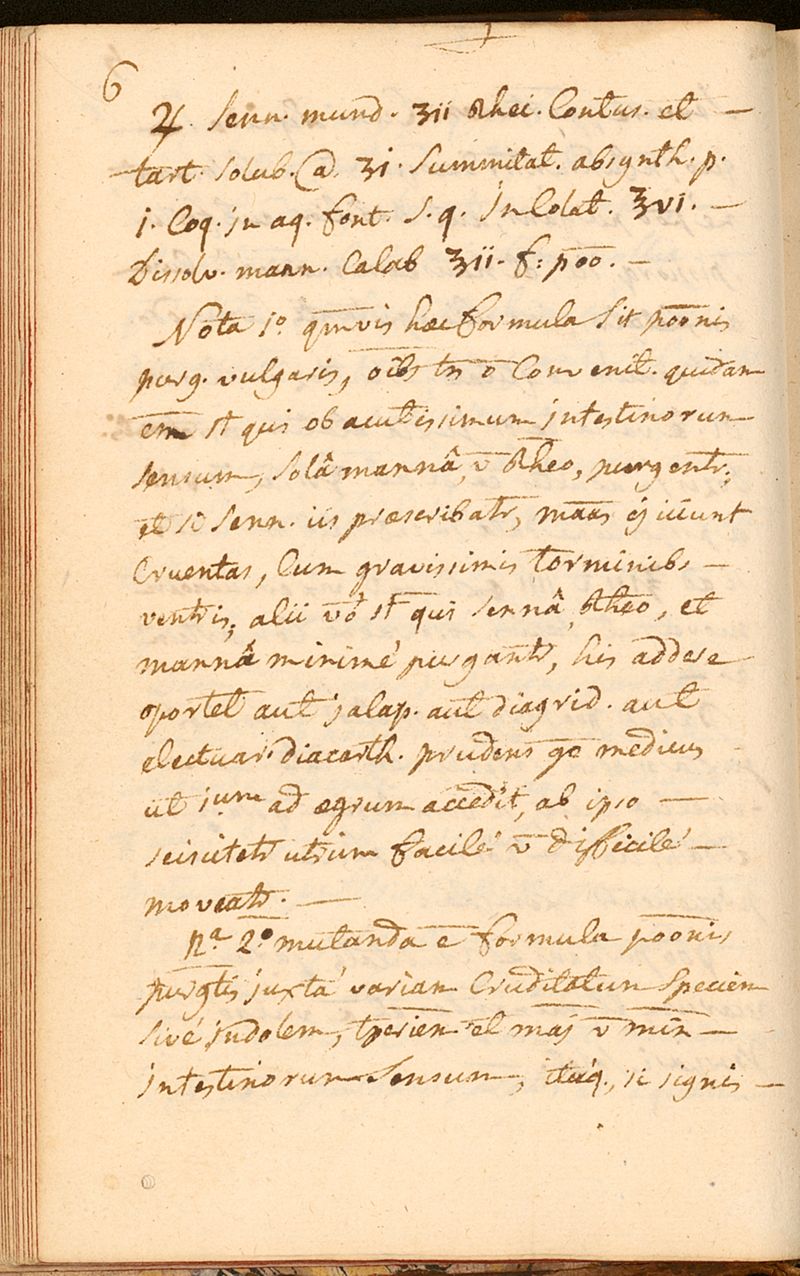 6
♃. Senn. mund. ʒii Rhei. Contus. et —
tart. solub. @ ʒi. Summitat. absynth. p.
j. Coq. in aq. font. S. q. in Colat. ℥vi. —
Dissolv. mann. Calab ℥ii. f: p̄oō. —
Nota 1.º qm̄vis hæc formula Sit p̄oōnis
purg. vulgaris, oīb̄s tn̄ ō Convenit. quidam
em̄ st̄ qui ob acutissimum intestinorum
sensum, Solâ mannâ, v̄ Rheo, purgentr̄;
et si Senn. iis præscribatr̄, māas ej iiciunt
Cruentas, Cum gravissimis torminibs —
ventris; alii vō st̄ qui Sennâ Rheo, et
mannâ minimé purgantr̄, his addere
oportet aut jalap. aut diagrid. aut
electuar. diacarth. prudens gō medicus
ut jum ad ægrum accedit, ab ipso —
sciscitetr̄ utrum facilé v̄ difficilé —
moveatr̄. —
Nª 2.º mutanda ē formula p̄oōnis
purgtis juxtá variam Cruditatum Speciem
Sivé indolem, tperiem et maj v̄ min —
intestinorum Sensum, itáq., si signis —